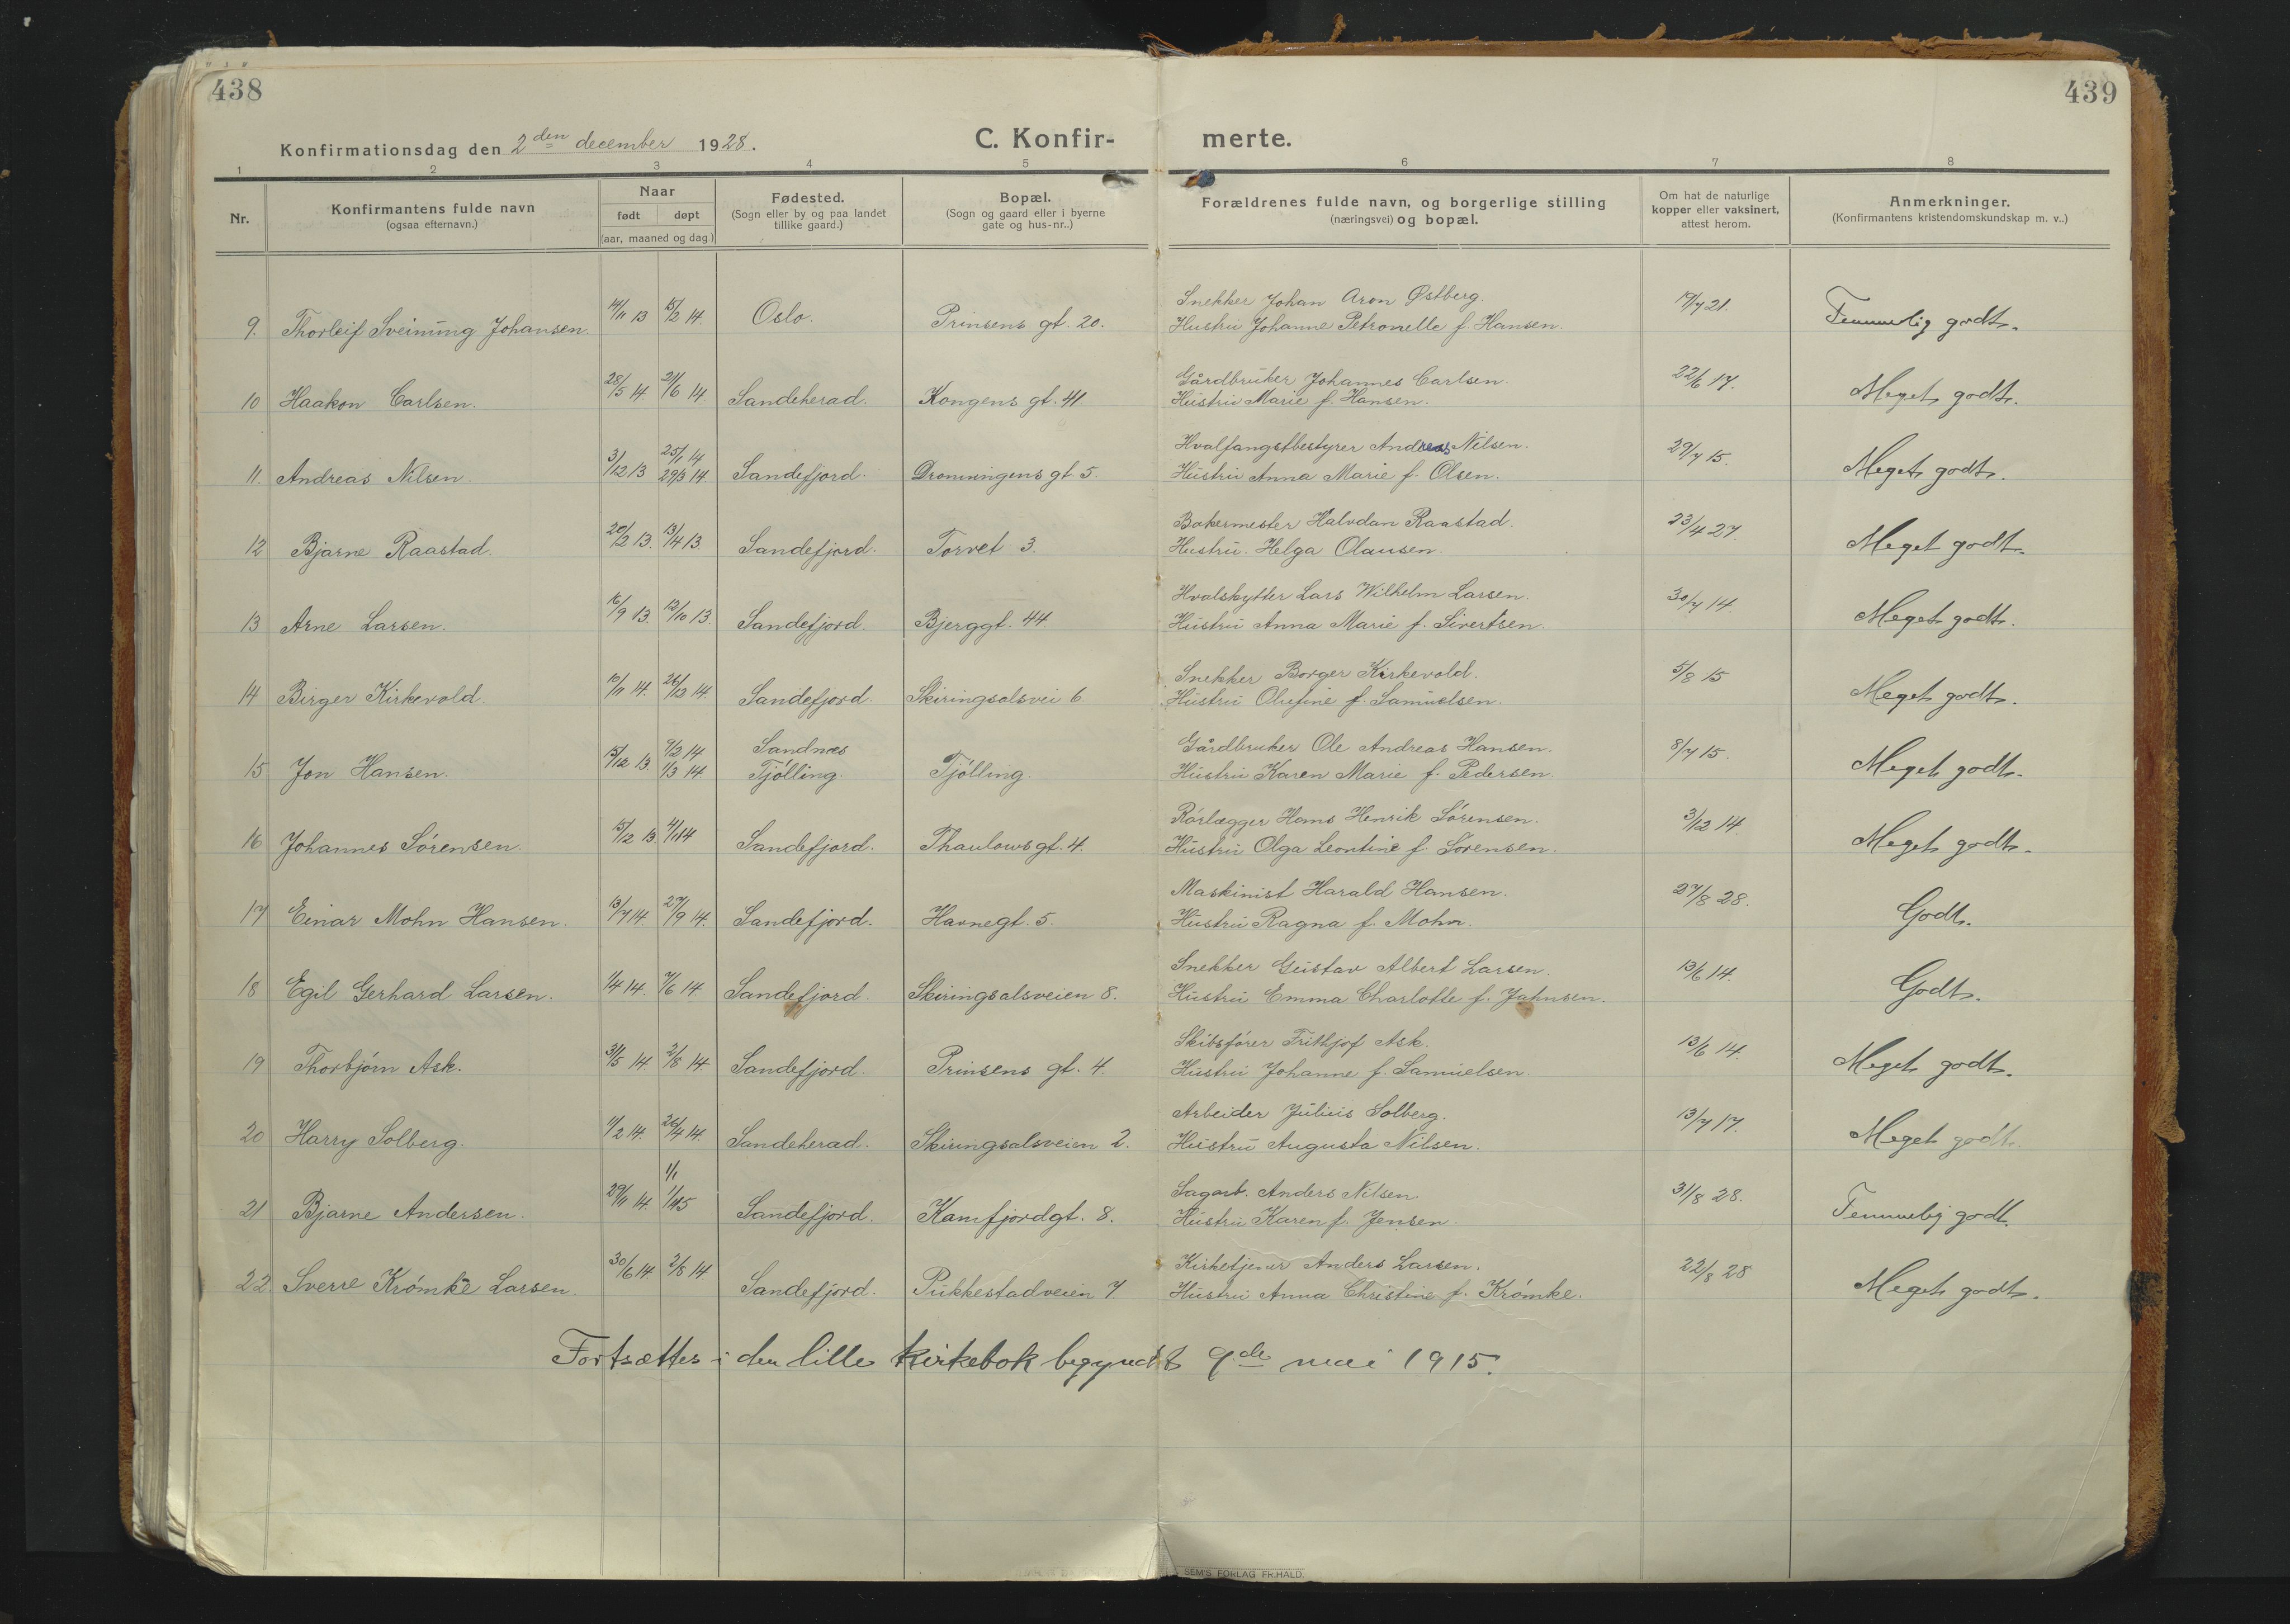 438
439
Konfirmationsdag den 2den december 1928.
C. Konfir-
merte.
1 2 3 4 5 6 7 8
Nr.
Konfirmantens fulde navn
(ogsaa efternavn.)
Naar
født døpt
(aar, maaned og dag)
Fødested.
(Sogn eller by og paa landet
tillike gaard.)
Bopæl.
(Sogn og gaard eller i byerne
gate og hus-nr..)
Forældrenes fulde navn, og borgerlige stilling
(næringsvei) og bopæl.
Om hat de naturlige
kopper eller vaksinert,
attest herom.
Anmerkninger.
(Konfirmantens kristendomskundskap m. v..)
Snekker Johan Aron Østberg.
9. Thorleif Sveinung Johansen. 14/11 13 15/2 14. Oslo. Prinsens gt. 20. Hustru Johanne Petronelle f. Hansen. 19/7 21. Temmelig godt.
Gårdbruker Johannes Carlsen.
10 Haakon Carlsen. 28/5 14 21/6 14. Sandeherad. Kongens gt. 41 Hustru Marie f. Hansen. 22/6 17. Meget godt.
25/1 14 Hvalfangstbestyrer Andreas Nilsen.
11. Andreas Nilsen. 3/12 13 29/3 14 Sandefjord. Dronningens gt 5. Hustru Anna Marie f. Olsen. 29/7 15. Meget godt.
Bakermester Halvdan Raastad.
12 Bjarne Raastad. 20/2 13. 13/4 13. Sandefjord. Torvet 3. Hustru. Helga Olausen. 23/4 27. Meget godt.
Hvalskytter Lars Wilhelm Larsen.
13 Arne Larsen. 16/9 13. 12/10 13. Sandefjord. Bjerggt. 44. Hustru Anna Marie f. Sivertsen. 30/7 14. Meget godt.
Snekker Borger Kirkevold.
14 Birger Kirkevold. 10/11 14. 26/12 14. Sandefjord. Skiringsalsvei 6. Hustru Olufine f. Samuelsen. 5/8 15 Meget godt.
9/2 14 Sandnæs Gårdbruker Ole Andreas Hansen.
15 Jon Hansen. 15/12 13 1/3 14 Tjølling. Tjølling. Hustru Karen Marie f. Pedersen. 8/7 15. Meget godt.
Rørlægger Hans Henrik Sørensen.
16 Johannes Sørensen. 15/12 13. 4/1 14 Sandefjord. Thaulowsgt. 4. Hustru Olga Leontine f. Sørensen. 3/12 14. Meget godt.
Maskinist Harald Hansen.
17 Einar Mohn Hansen. 13/7 14. 27/9 14. Sandefjord. Havnegt. 5. Hustru Ragna f. Mohn. 27/8 28. Godt.
Snekker Gustav Albert Larsen.
18 Egil Gerhard Larsen. 1/4 14. 7/6 14 Sandefjord. Skiringsalsveien 8. Hustru Emma Charlotte f. Jahnsen. 13/6 14. Godt.
Skibsfører Frithjof Ask.
19 Thorbjørn Ask. 31/5 14. 2/8 14 Sandefjord. Prinsens gt. 4. Hustru Johanne f. Samuelsen. 13/6 14. Meget godt.
Arbeider Julius Solberg.
20 Harry Solberg. 11/2 14. 26/4 14. Sandeherad. Skiringsalsveien 2. Hustru Augusta Nilsen. 13/7 17. Meget godt.
1/1 Sagarb. Anders Nilsen.
21 Bjarne Andersen. 29/11 14. 1/1 15 Sandefjord. Kamfjordgt. 8. Hustru Karen f. Jensen. 31/8 28. Temmelig godt.
Kirketjener Anders Larsen.
22. Sverre Krømke Larsen. 30/6 14. 2/8 14 Sandefjord. Pukkestadveien 7 Hustru Anna Christine f. Krømke. 22/8 28 Meget godt.
Fortsættes i den lille kirkebok begyndt 9de mai 1915.
SEM'S FORLAG FR.HALD.